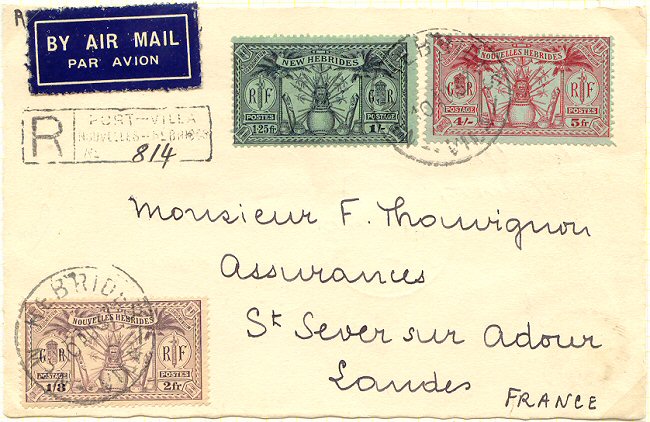 R
BY AIR MAIL
PAR AVION
R
PORT-VILLA
NOUVELLES-HEBRIDES
No 814
NEW HEBRIDES
R F
G R
POSTES POSTAGE
1·25fr 1/-
NOUVELLES HEBRIDES
G R
R F
POSTAGE POSTES
4/- 5fr
Monsieur F. Thouvignon
Assurances
St Sever sur Adour
Landes
FRANCE
HEBRIDES
NOUVELLES HEBRIDES
G R
R F
POSTAGE POSTES
1/8 2fr